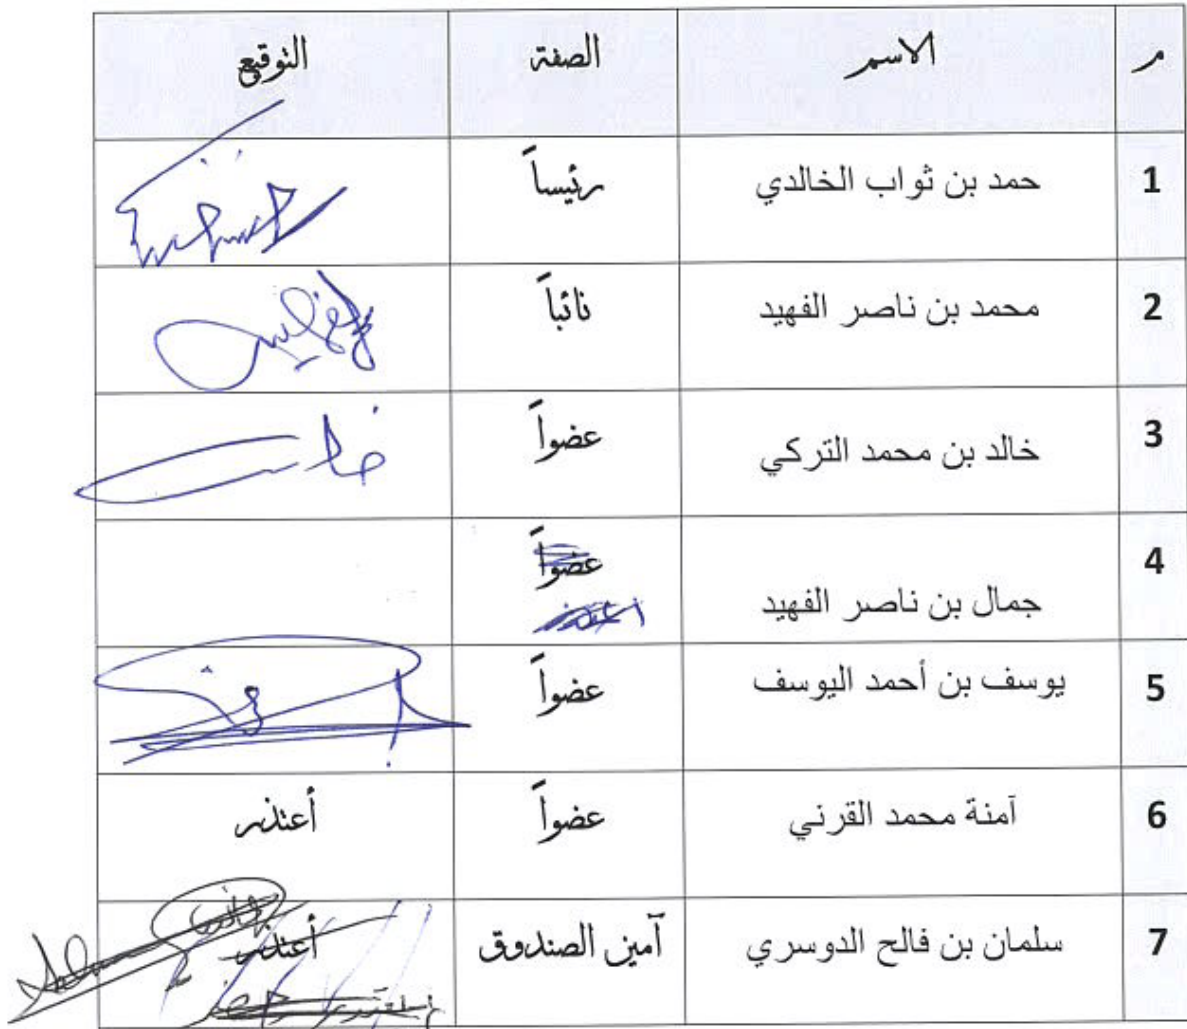 م الاسم الصفة التوقيع
1 حمد بن ثواب الخالدي رئيساً
2 محمد بن ناصر الفهيد نائباً
3 خالد بن محمد التركي عضواً
4 جمال بن ناصر الفهيد عضواً
5 يوسف بن أحمد اليوسف عضواً
6 آمنة محمد القرني عضواً أعتذر
7 سلمان بن فالح الدوسري آمين الصندوق أعتذر